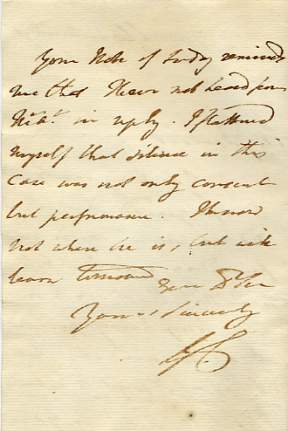 Your Note of today reminds
me that I have not heard from
in reply. I flattered
myself that silence in this
case was not only consent
but performance. I know
not where he is, but will
learn
Yours sincerely